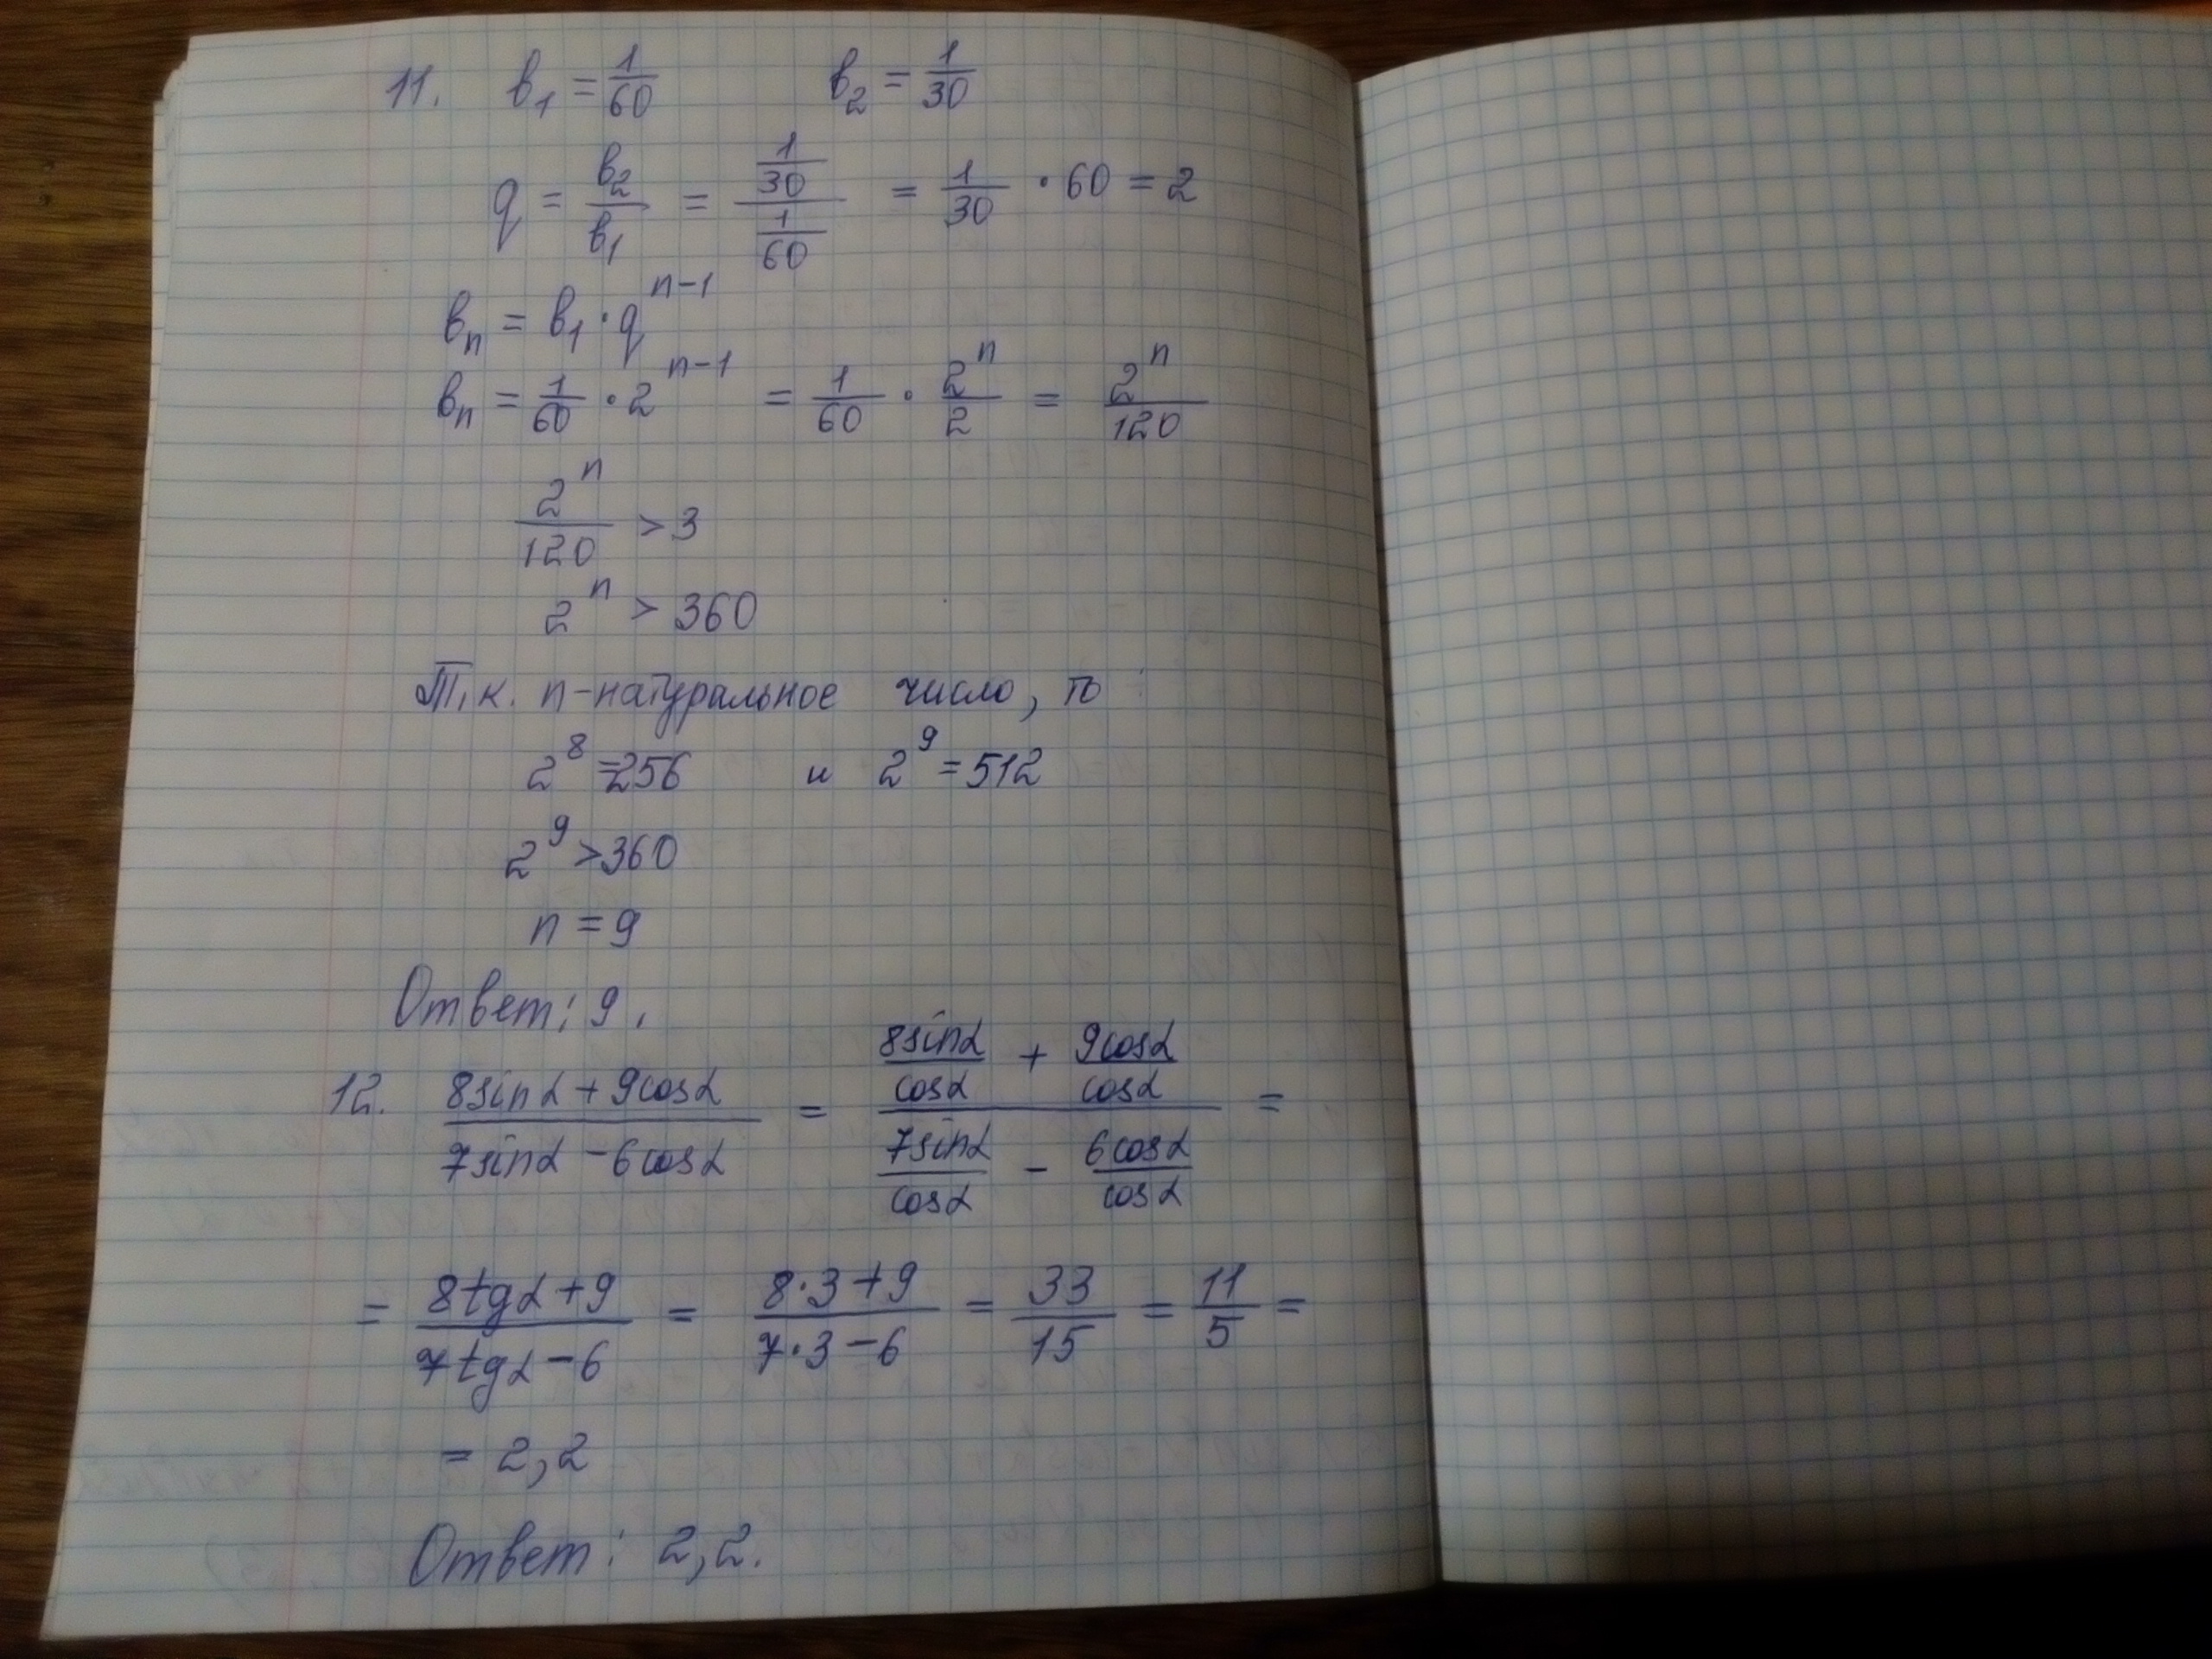 11. b₁ = 1/60 b₂ = 1/30
q = b₂/b₁ = (1/30)/(1/60) = 1/30 · 60 = 2
bₙ = b₁ · qⁿ⁻¹
bₙ = 1/60 · 2ⁿ⁻¹ = 1/60 · 2ⁿ/2 = 2ⁿ/120
2ⁿ/120 > 3
2ⁿ > 360
Т.к. n-натуральное число, то
2⁸ = 256 и 2⁹ = 512
2⁹ > 360
n = 9
Ответ: 9.
12. (8sinα + 9cosα)/(7sinα - 6cosα) = (8sinα/cosα + 9cosα/cosα)/(7sinα/cosα - 6cosα/cosα) =
= (8tgα + 9)/(7tgα - 6) = (8·3+9)/(7·3-6) = 33/15 = 11/5 =
= 2,2
Ответ: 2,2.